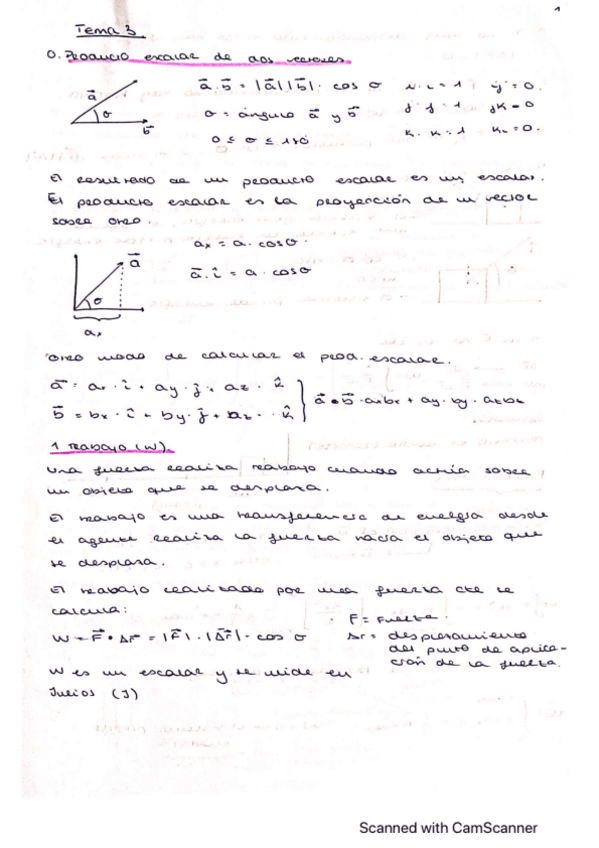 1
Tema 3
0. Producto escalar de dos vectores
a⃗ · b⃗ = |a⃗| |b⃗| · cos σ
σ = ángulo a⃗ y b⃗
0 ≤ σ ≤ 180
i · i = 1 ij = 0.
j · j = 1 jk = 0
k · k = 1 ki = 0.
a⃗
σ
b⃗
El resultado de un producto escalar es un escalar.
El producto escalar es la proyección de un vector
sobre otro.
ax = a · cos σ
a⃗ · î = a · cos σ
a⃗
σ
ax
Otro modo de calcular el prod. escalar.
a⃗ = ax · î + ay · ĵ + az · k̂
b⃗ = bx · î + by · ĵ + bz · k̂
a⃗ • b⃗ = axbx + ay · by + azbz
1 Trabajo (W).
Una fuerza realiza trabajo cuando actúa sobre
un objeto que se desplaza.
El trabajo es una transferencia de energía desde
el agente realiza la fuerza hacia el objeto que
se desplaza.
El trabajo realizado por una fuerza cte se
calcula:
W = F⃗ • Δr⃗ = |F⃗| · |Δr⃗| · cos σ
F = Fuerza.
Δr = desplazamiento
del punto de aplica-
ción de la fuerza.
W es un escalar y se mide en
Julios (J)
Scanned with CamScanner